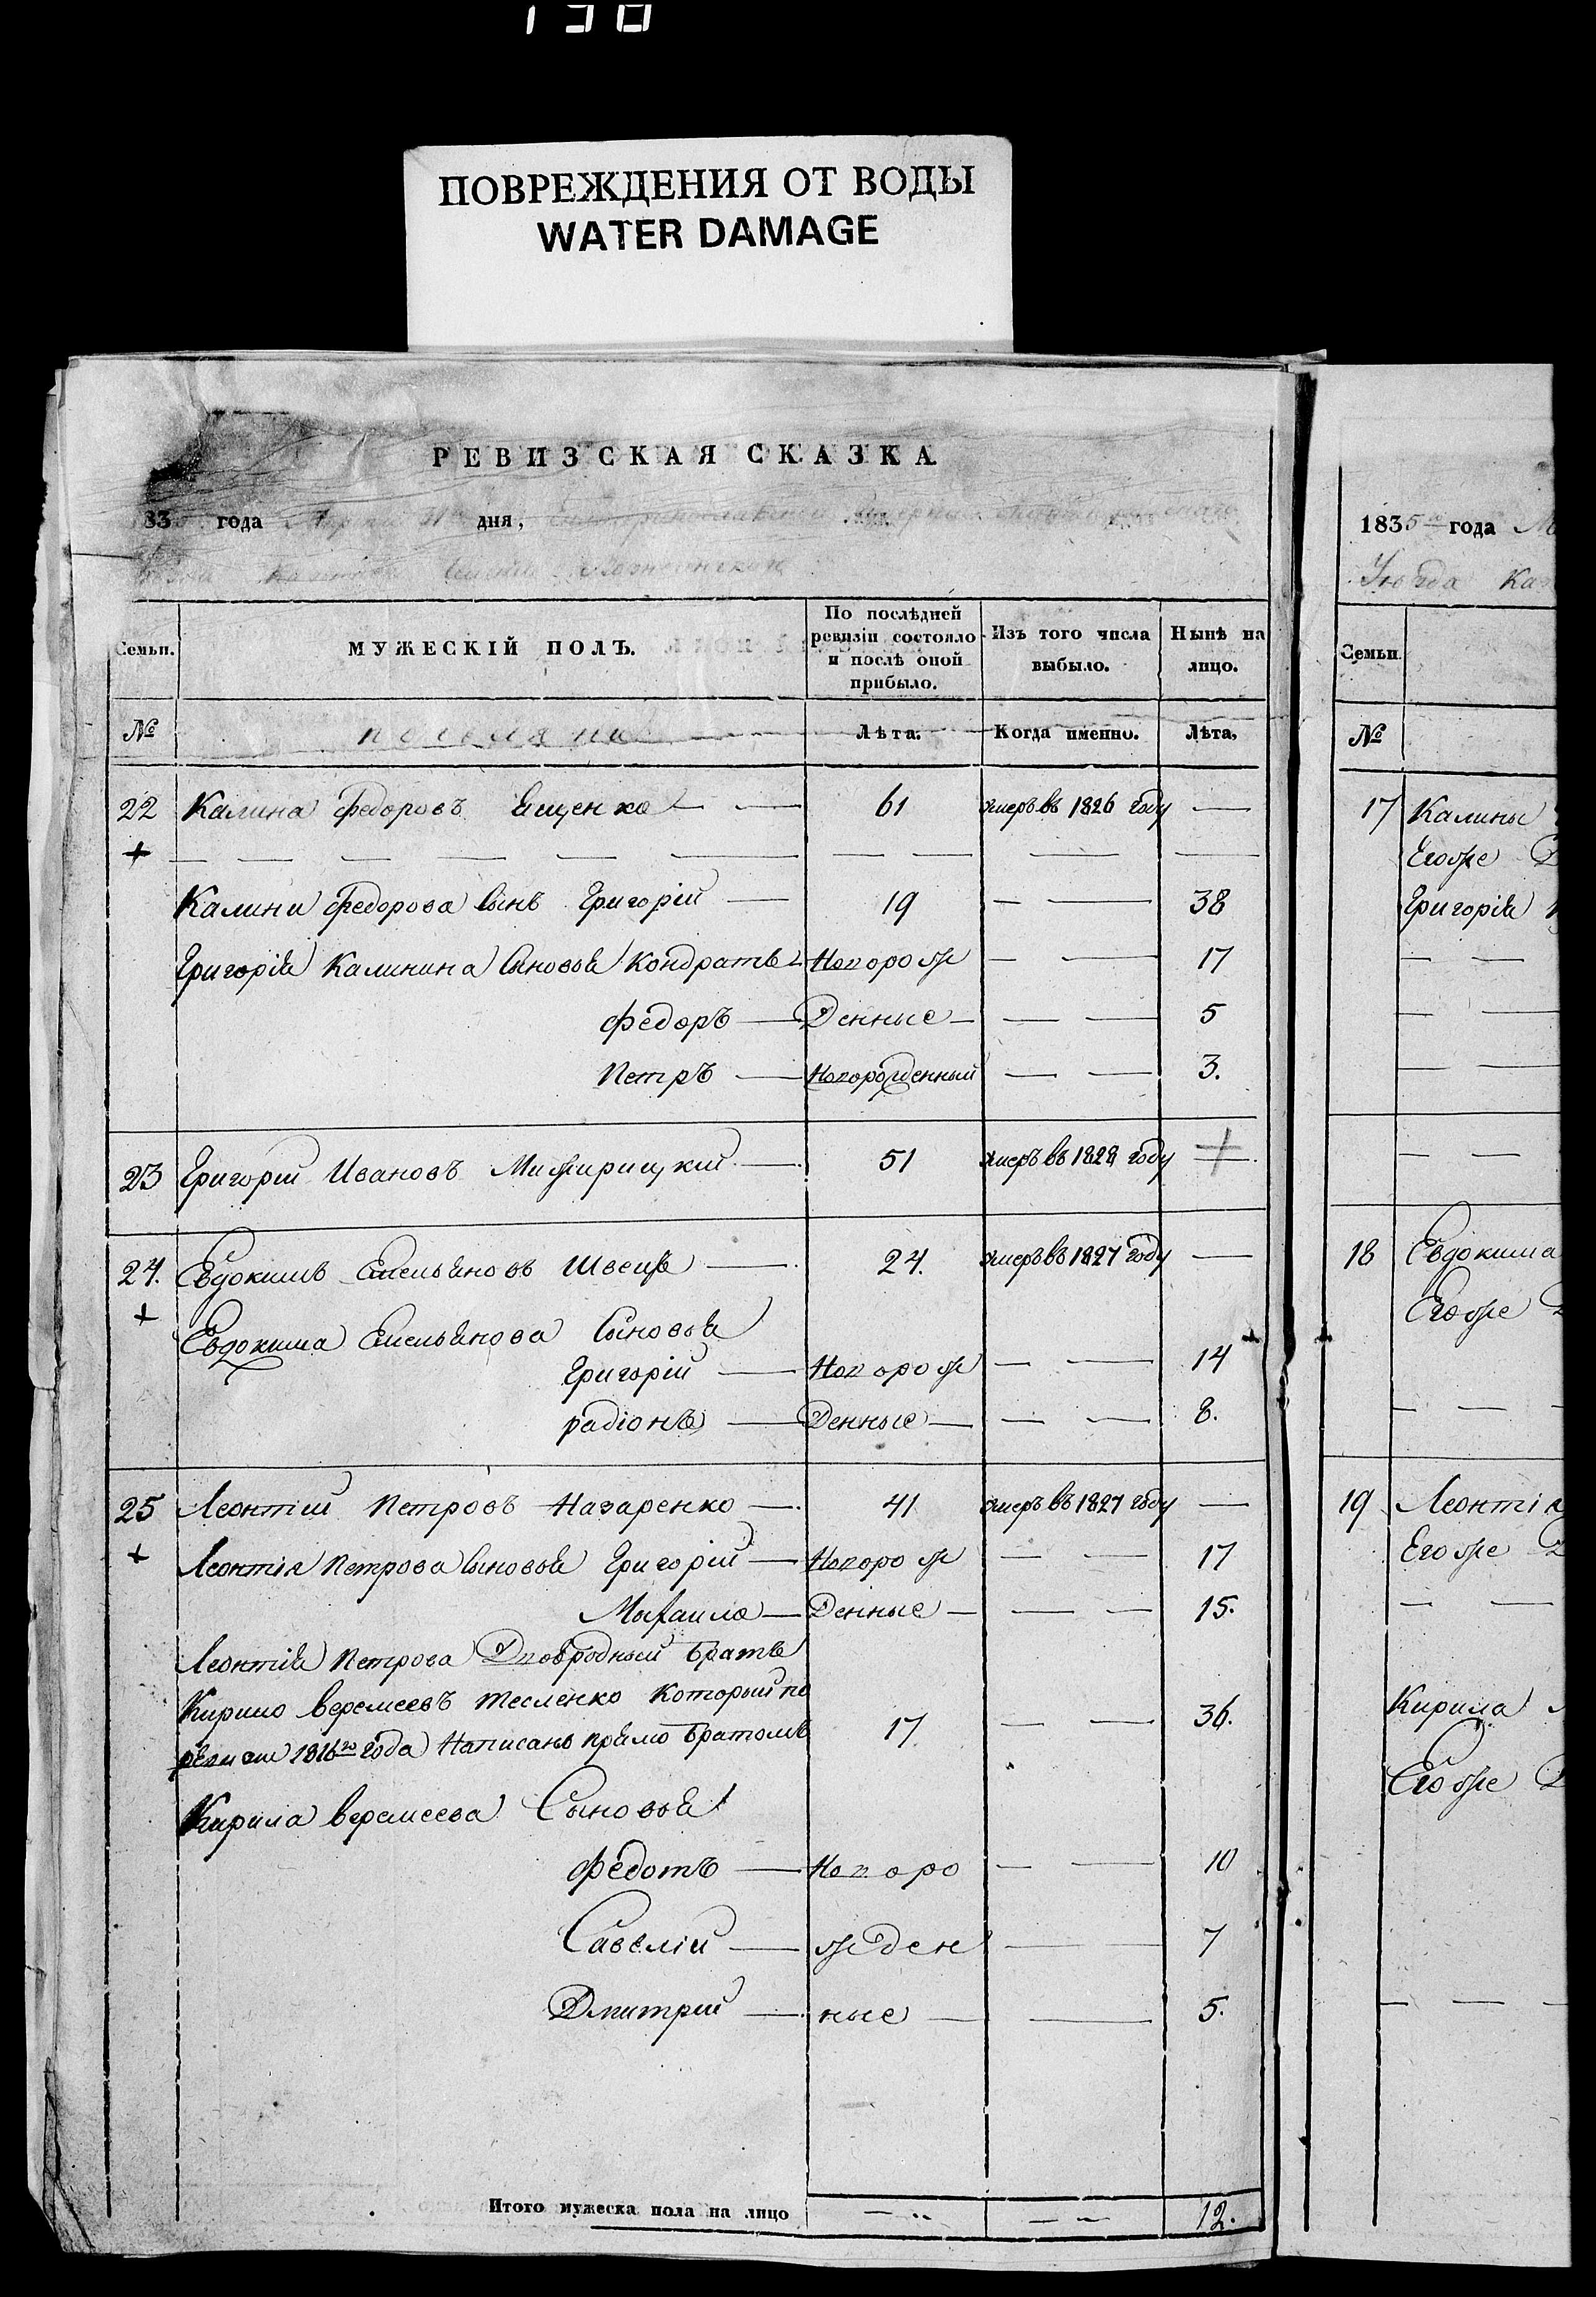 ПОВРЕЖДЕНИЯ ОТ ВОДЫ
WATER DAMAGE
РЕВИЗСКАЯ СКАЗКА
83 года Марта дня,
Семьи. МУЖЕСКІЙ ПОЛЪ. По послѣдней ревизіи состояло и послѣ оной прибыло. Изъ того числа выбыло. Нынѣ на лицо.
№ Лѣта. Когда именно. Лѣта,
22 Калина Федоровъ Ященко — — 61 умеръ въ 1826 году —
+ — — — — — — — — — —
Калини Федорова сынъ Григорій — 19 — — 38
Григорія Калинина сыновья Кондратъ Новорож — — 17
Федоръ — Денные — — — 5
Петръ — Новорожденный — — 3.
23 Григорій Ивановъ Мижирицкій — 51 умеръ въ 1828 году +
24. Евдокимъ Емельяновъ Швецъ — 24. умеръ въ 1827 году —
+ Евдокима Емельянова Сыновья
Григорій — Новорож — — 14
радіонъ — Денные — — — 8.
25 Леонтій Петровъ Назаренко — 41 умеръ въ 1827 году —
+ Леонтія Петрова сыновья Григорій — Новорож — — 17
Михаило — Денные — — — 15.
Леонтія Петрова Двоюродный братъ
Кирило Веремеевъ Тесленко который по
ревизіи 1816го года Написанъ прямо братомъ 17. — — 36.
Кирила Веремеева Сыновья
Федотъ — Новоро — — 10
Савелій — жден — 7
Дмитрій — ные — — 5.
Итого мужеска пола на лицо — — — 12.
1835 года М
Уѣзда Каз
Семьи
№
17 Калины
Егоже
Григорія
— —
— —
— —
— —
18 Евдокима
Егоже
— — —
19 Леонтія
Егоже
— —
Кирила
Егоже
— — —